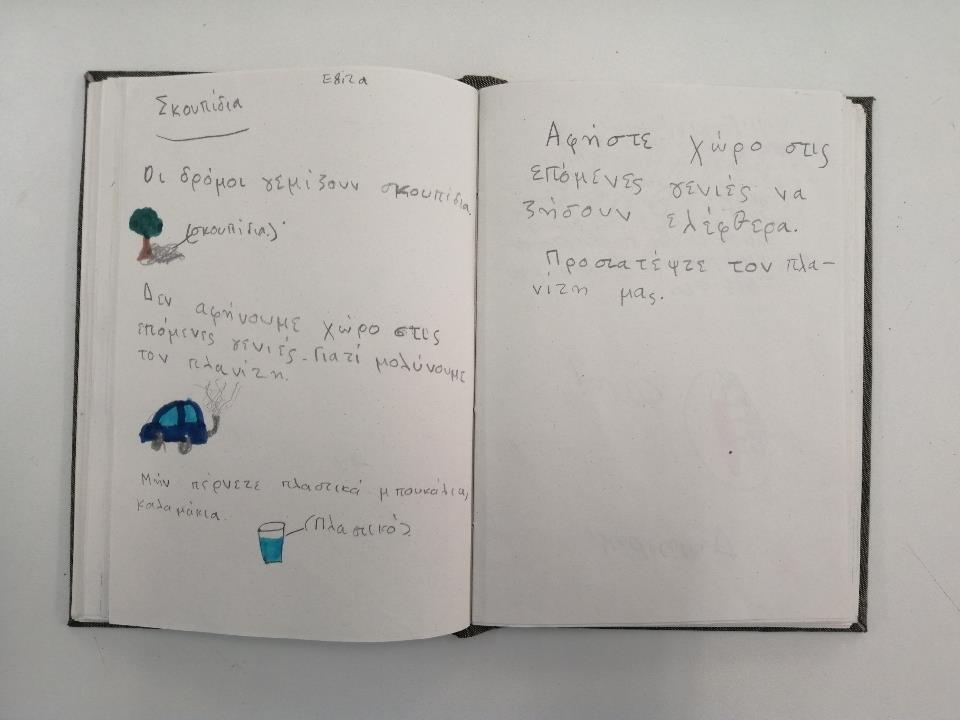 Εβίτα
Σκουπίδια
Οι δρόμοι γεμίζουν σκουπίδια.
(σκουπίδια)
Δεν αφήνουμε χώρο στις
επόμενες γενιές. Γιατί μολύνουμε
τον πλανίτη.
Μήν πέρνετε πλαστικά μπουκάλια,
καλαμάκια.
(Πλαστικό)
Αφήστε χώρο στις
επόμενες γενιές να
ζήσουν ελέφθερα.
Προστατέψτε τον πλα-
νίτη μας.